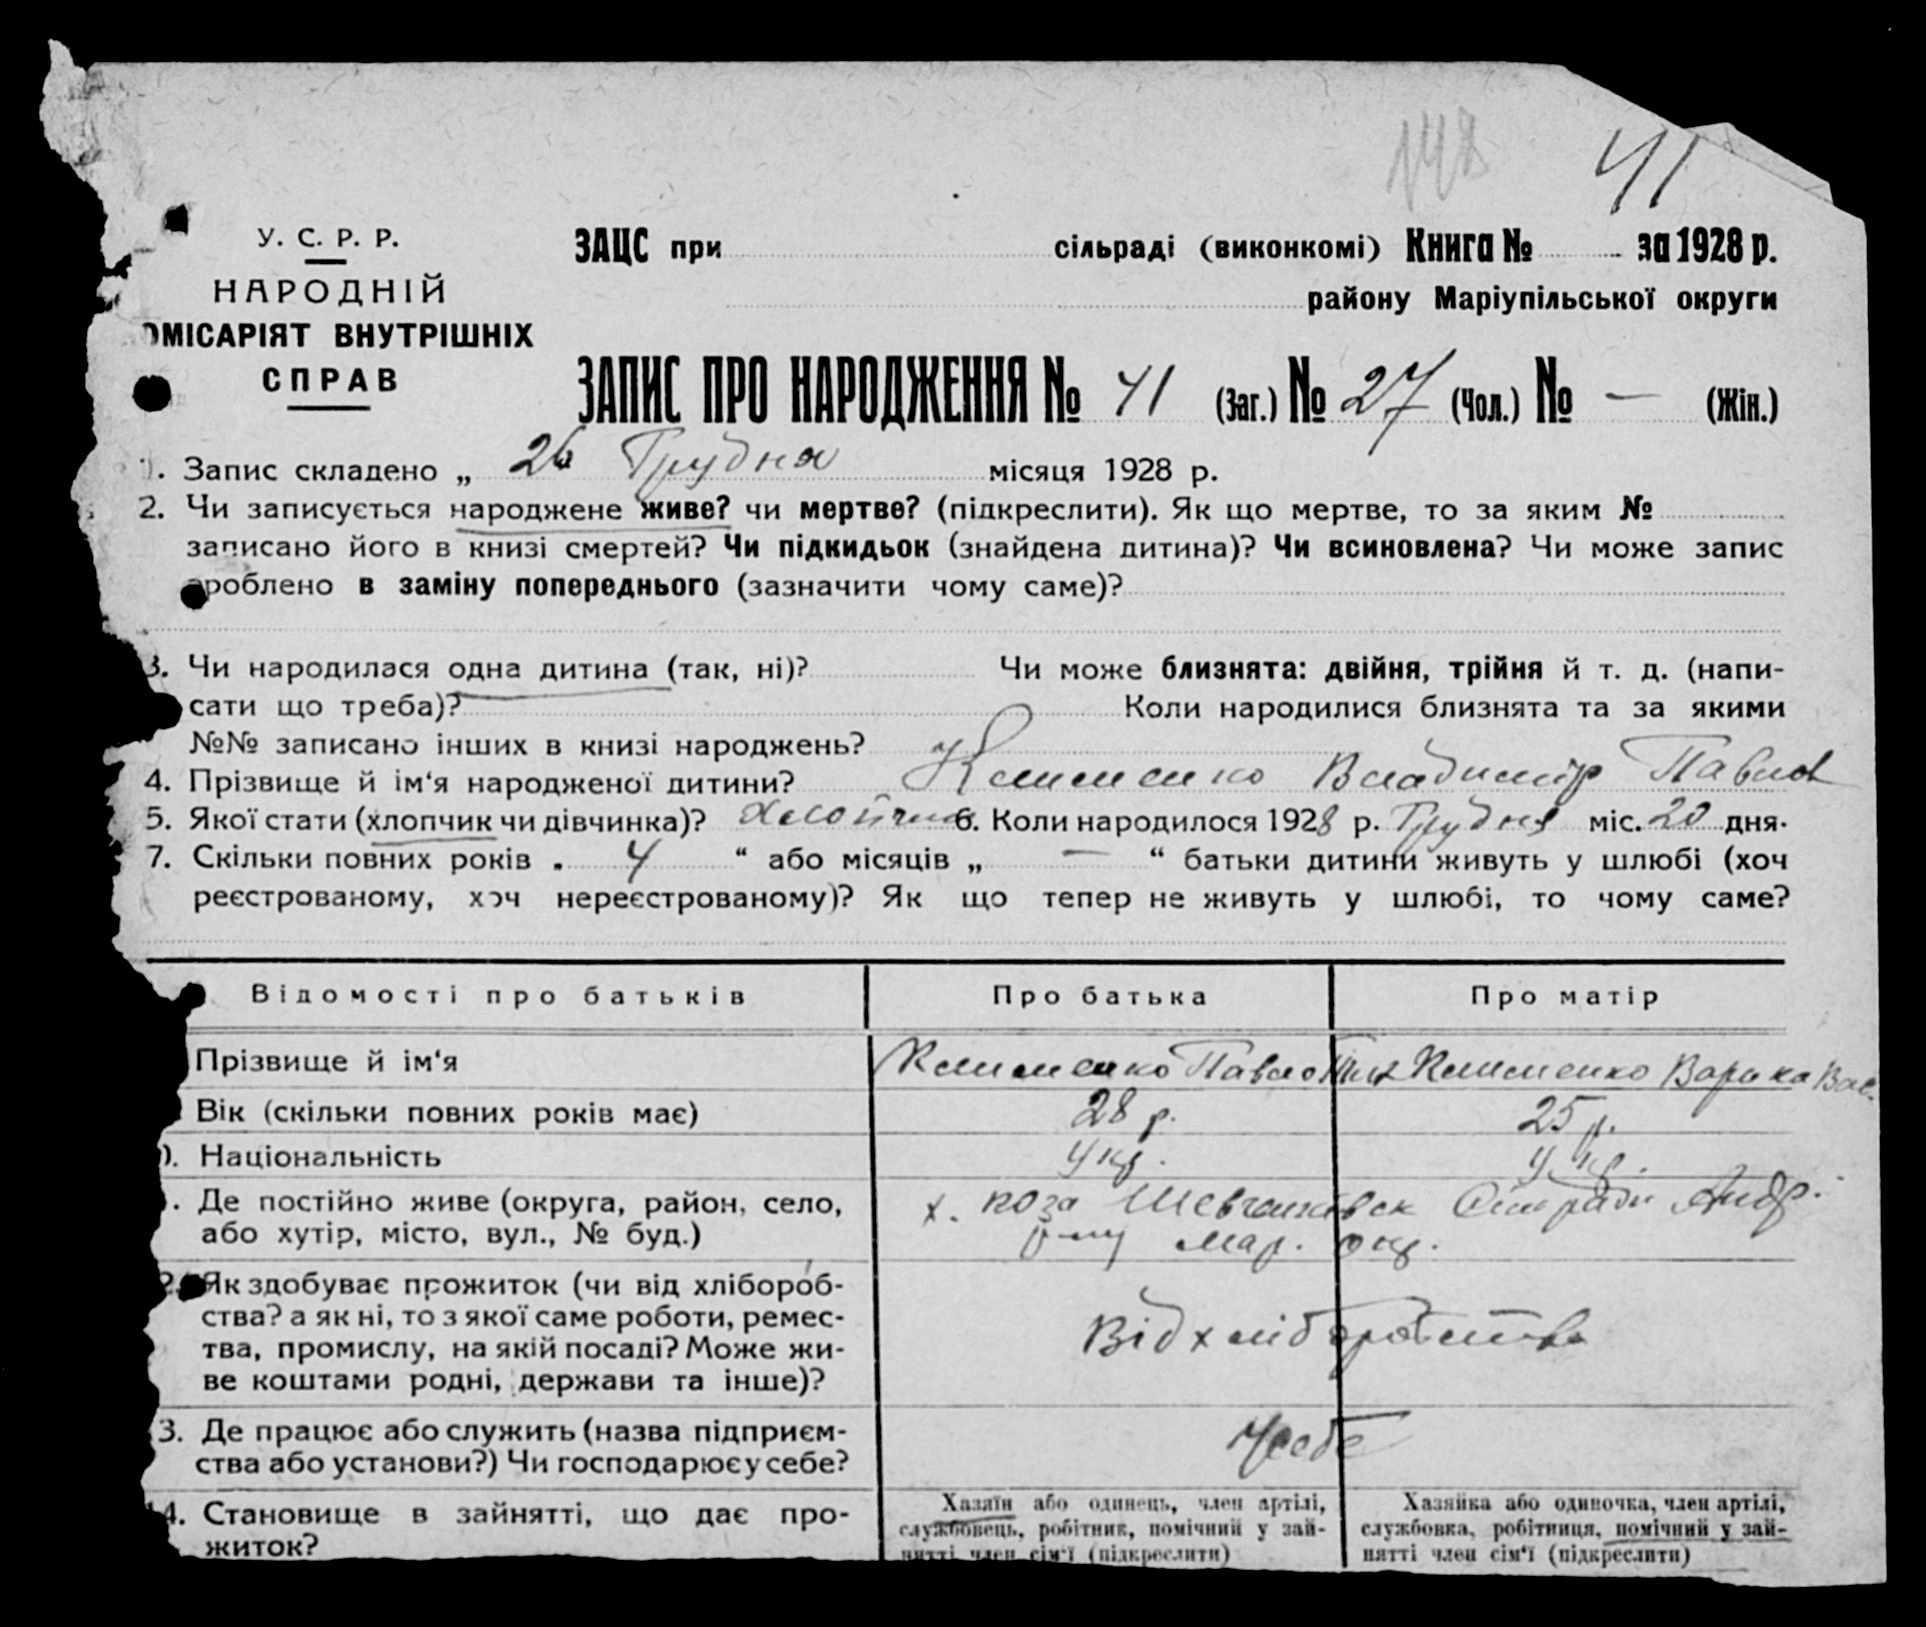 148 41
У. С. Р. Р.
НАРОДНІЙ
ОМІСАРІЯТ ВНУТРІШНІХ
СПРАВ
ЗАЦС при сільраді (виконкомі) Книга № за 1928 р.
району Маріупільської округи
ЗАПИС ПРО НАРОДЖЕННЯ № 41 (Заг.) № 27 (Чол.) № — (Жін.)
1. Запис складено „ 26 Грудня місяця 1928 р.
2. Чи записується народжене живе? чи мертве? (підкреслити). Як що мертве, то за яким №
записано його в книзі смертей? Чи підкидьок (знайдена дитина)? Чи всиновлена? Чи може запис
зроблено в заміну попереднього (зазначити чому саме)?
3. Чи народилася одна дитина (так, ні)? Чи може близнята: двійня, трійня й т. д. (напи-
сати що треба)? Коли народилися близнята та за якими
№№ записано інших в книзі народжень?
4. Прізвище й ім‘я народженої дитини? Клименко Владимір Павлов
5. Якої стати (хлопчик чи дівчинка)? Хлопчик 6. Коли народилося 1928 р. Грудня міс. 20 дня.
7. Скільки повних років „ 4 “ або місяців „ — “ батьки дитини живуть у шлюбі (хоч
реєстрованому, хоч нереєстрованому)? Як що тепер не живуть у шлюбі, то чому саме?
Відомості про батьків Про батька Про матір
Прізвище й ім‘я Клименко Павло Клименко Варька Вас.
Вік (скільки повних років має) 28 р. 25 р.
). Національність Укр. Укр.
. Де постійно живе (округа, район, село,
або хутір, місто, вул., № буд.)
х. Шевченківск Сільради Андр.
р-ну Мар. окр.
2. Як здобуває прожиток (чи від хлібороб-
ства? а як ні, то з якої саме роботи, ремес-
тва, промислу, на якій посаді? Може жи-
ве коштами родні, держави та інше)?
Від хліборобства
3. Де працює або служить (назва підприєм-
ства або установи?) Чи господарює у себе?
У себе
14. Становище в зайнятті, що дає про-
житок?
Хазяїн або одинець, член артілі,
службовець, робітник, помічний у зай-
нятті член сім‘ї (підкреслити)
Хазяйка або одиночка, член артілі,
службовка, робітниця, помічний у зай-
нятті член сім‘ї (підкреслити)